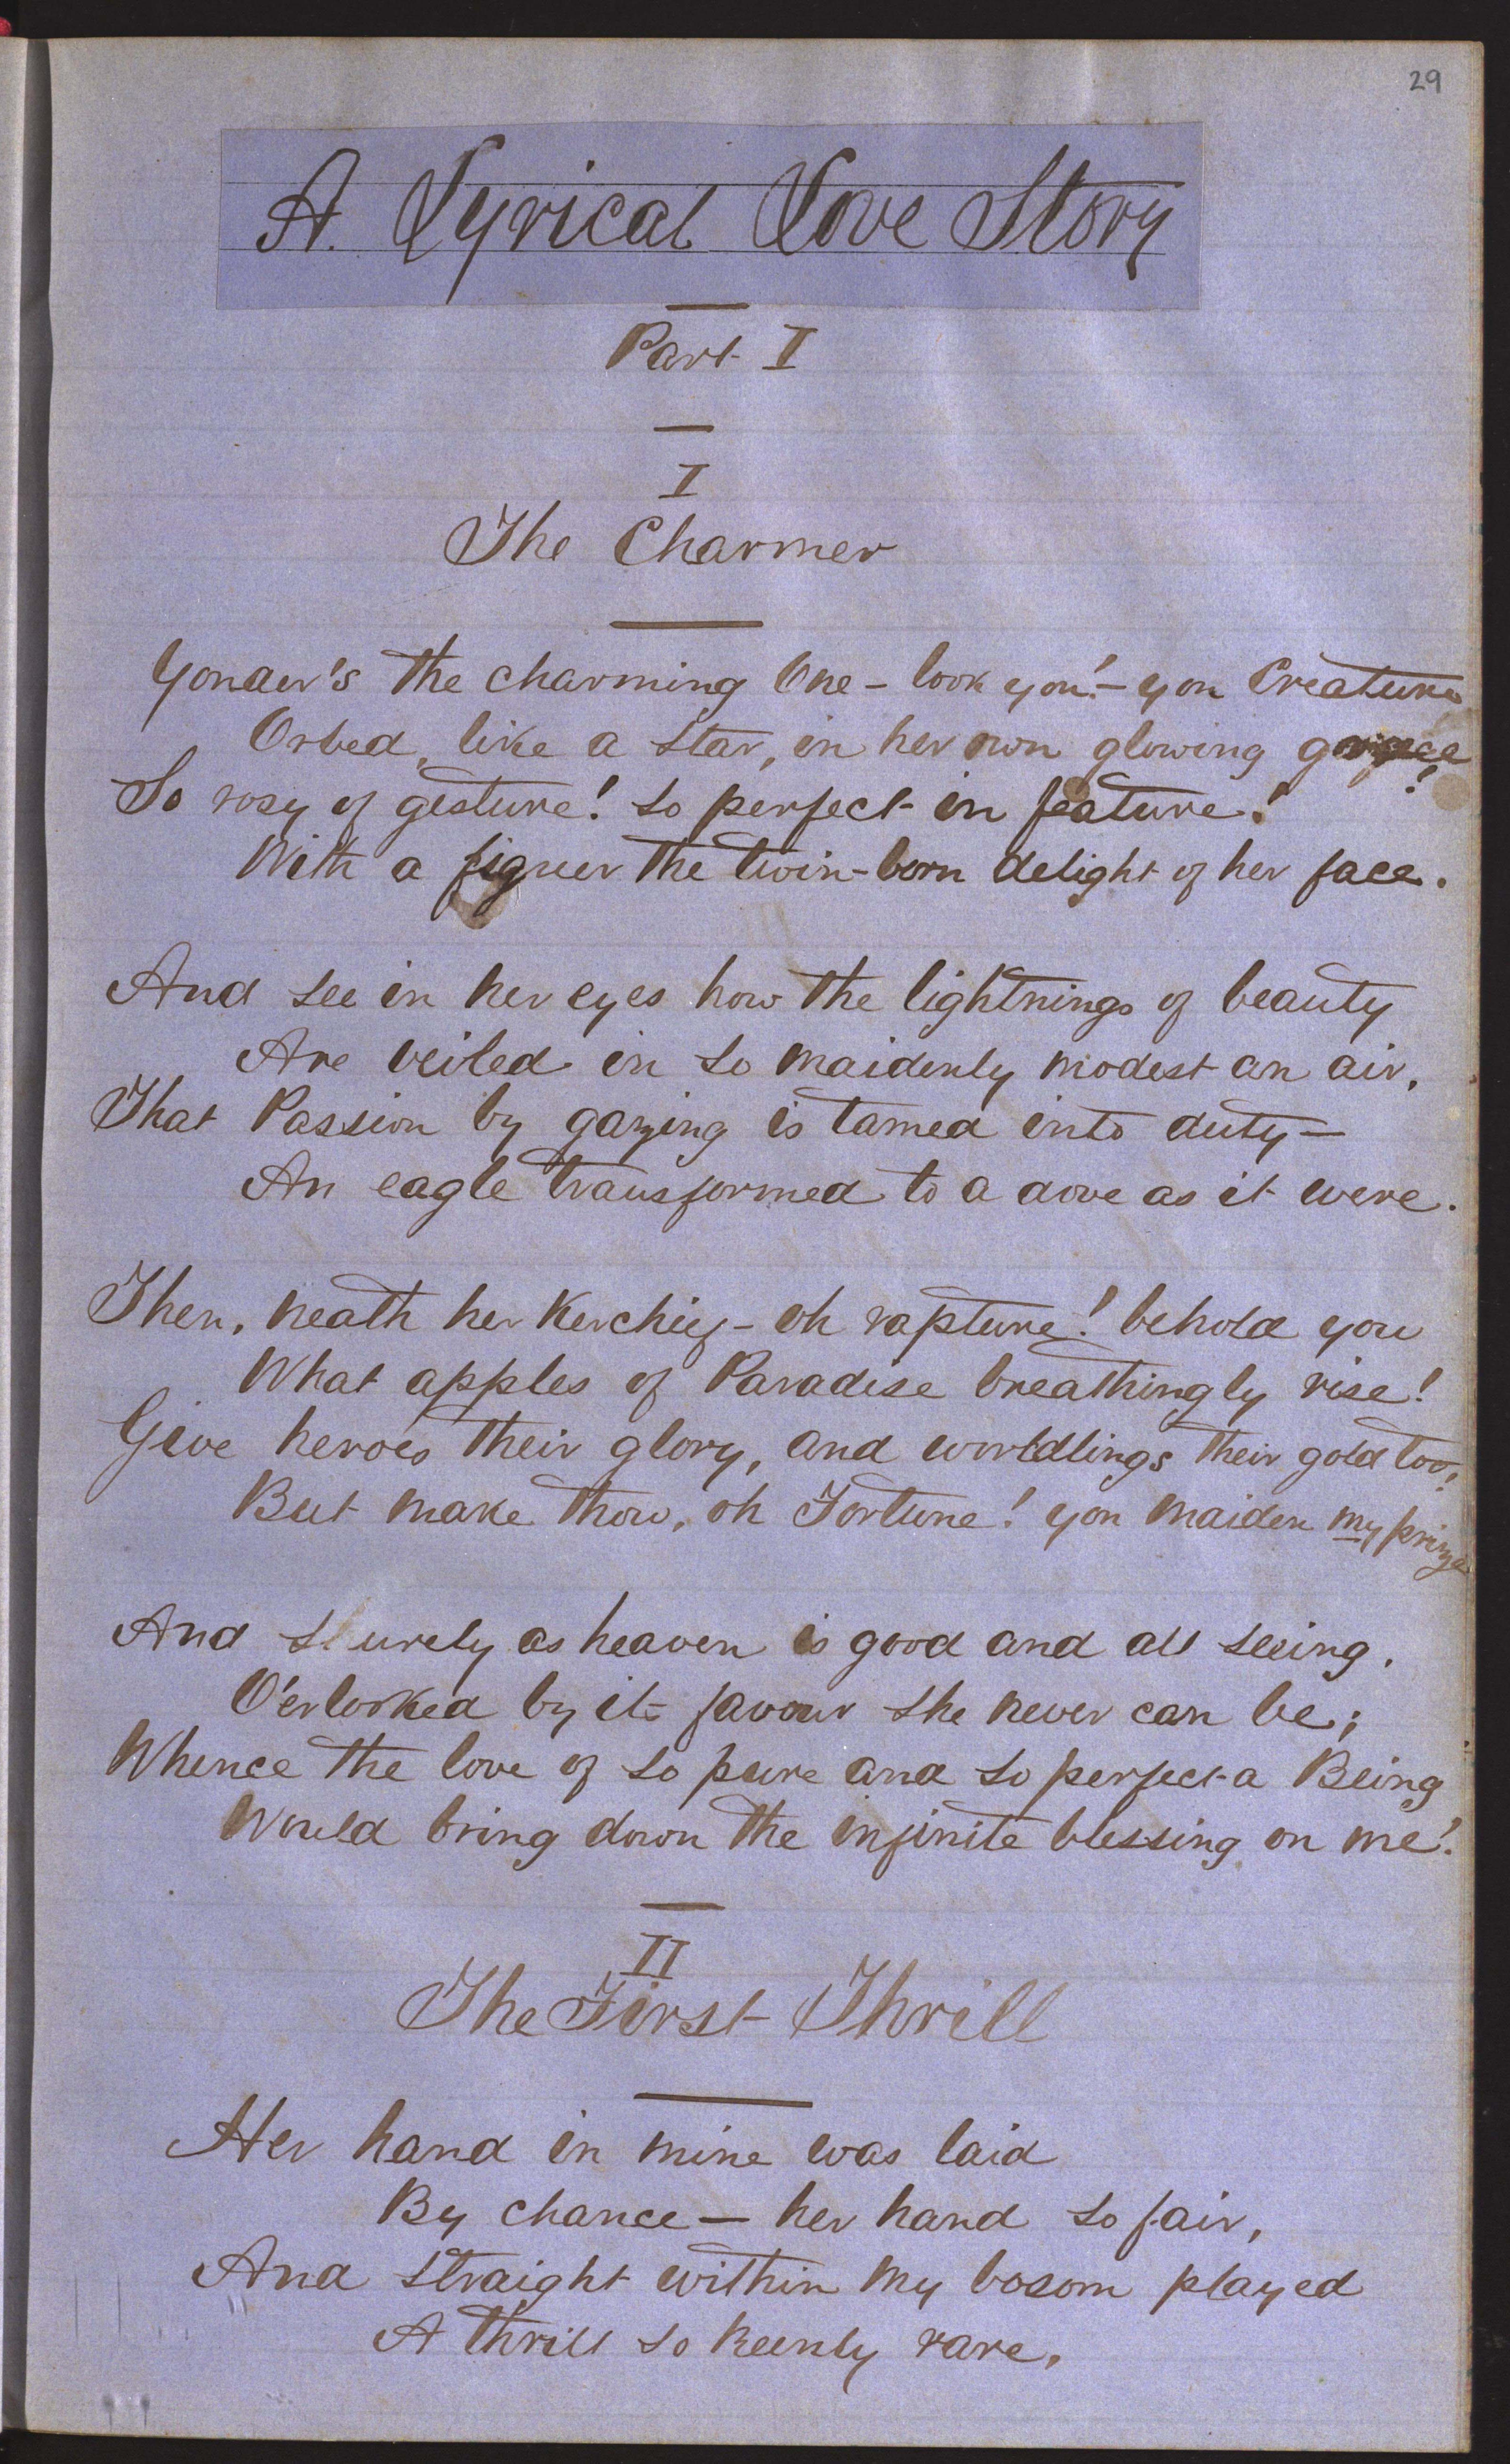 29
A. Lyrical Love Story
Part I
I
The Charmer
Yonder's the charming One – look you! – yon Creature
Orbed, like a star, in her own glowing grace!
So rosy of gesture! so perfect in feature!
With a figuer the twin-born delight of her face.
And see in her eyes how the lightnings of beauty
Are veiled in so maidenly modest an air,
That Passion by gazing is tamed into duty —
An eagle transformed to a dove as it were.
Then, neath her Kerchief – oh rapture! behold you
What apples of Paradise breathingly rise!
Give heroes their glory, and worldlings their gold too,
But make thow, oh Fortune! yon maiden my prize
And surely as heaven is good and all seeing,
O'erlooked by its favour she never can be;
Whence the love of so pure and so perfect a Being
Would bring down the infinite blessing on me!
II
The First Thrill
Her hand in mine was laid
By chance — her hand so fair,
And straight within my bosom played
A thrill so keenly rare,